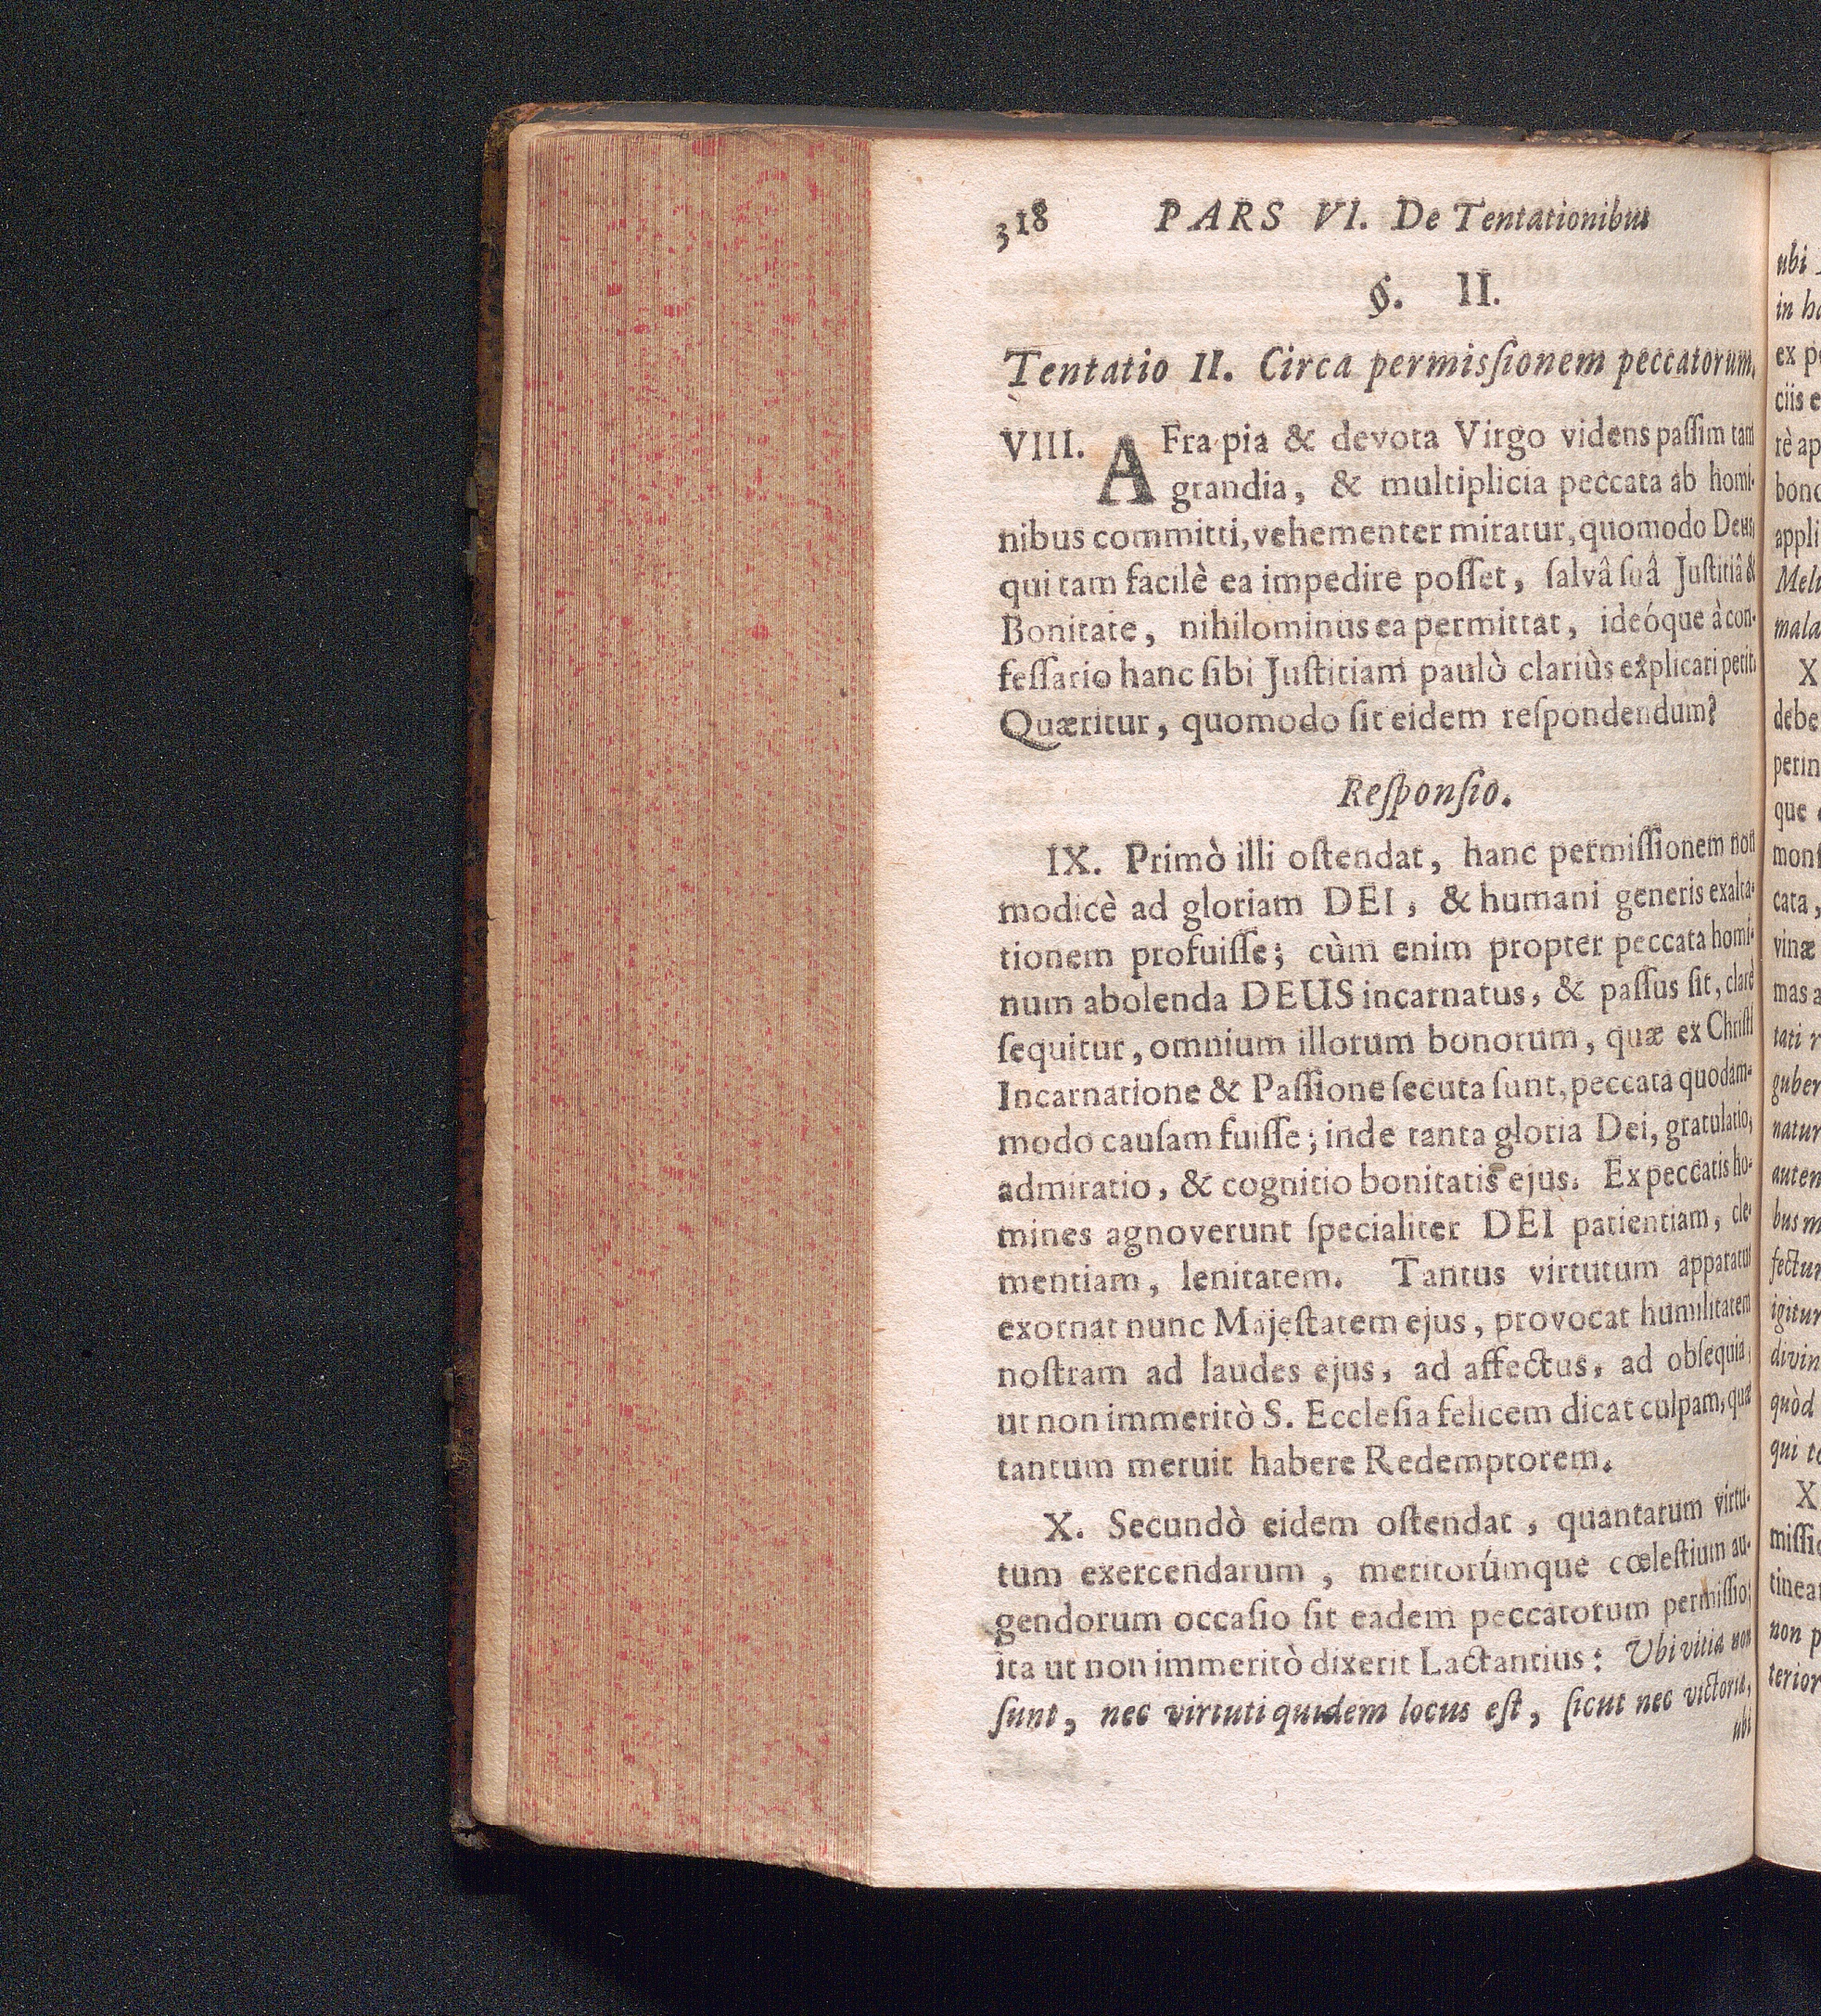 318 PARS VI. De Tentationibus
§. II.
Tentatio II. Circa permisſionem peccatorum.
VIII. AFra pia & devota Virgo videns paſſim tam
grandia, & multiplicia peccata ab homi-
nibus committi, vehementer miratur, quomodo Deus,
qui tam facilè ea impedire poſſet, ſalvâ ſuâ Juſtitiâ &
Bonitate, nihilominus ea permittat, ideóque à con-
feſſario hanc ſibi Juſtitiam paulò clariùs explicari petit.
Quæritur, quomodo ſit eidem reſpondendum?
Reſponſio.
IX. Primò illi oſtendat, hanc permiſſionem non
modicè ad gloriam DEI, & humani generis exalta-
tionem profuiſſe; cùm enim propter peccata homi-
num abolenda DEUS incarnatus, & paſſus ſit, clarè
ſequitur, omnium illorum bonorum, quæ ex Chriſti
Incarnatione & Paſſione ſecuta ſunt, peccata quodam-
modo cauſam fuiſſe; inde tanta gloria Dei, gratulatio,
admiratio, & cognitio bonitatis ejus. Ex peccatis ho-
mines agnoverunt ſpecialiter DEI patientiam, cle-
mentiam, lenitatem. Tantus virtutum apparatus
exornat nunc Majeſtatem ejus, provocat humilitatem
noſtram ad laudes ejus, ad affectus, ad obſequia,
ut non immeritò S. Eccleſia felicem dicat culpam, quæ
tantum meruit habere Redemptorem.
X. Secundò eidem oſtendat, quantarum virtu-
tum exercendarum, meritorúmque cœleſtium au-
gendorum occaſio ſit eadem peccatorum permiſſio;
ita ut non immeritò dixerit Lactantius: Ubi vitia non
ſunt, nec virtuti quidem locus eſt, ſicut nec victoria,
ubi